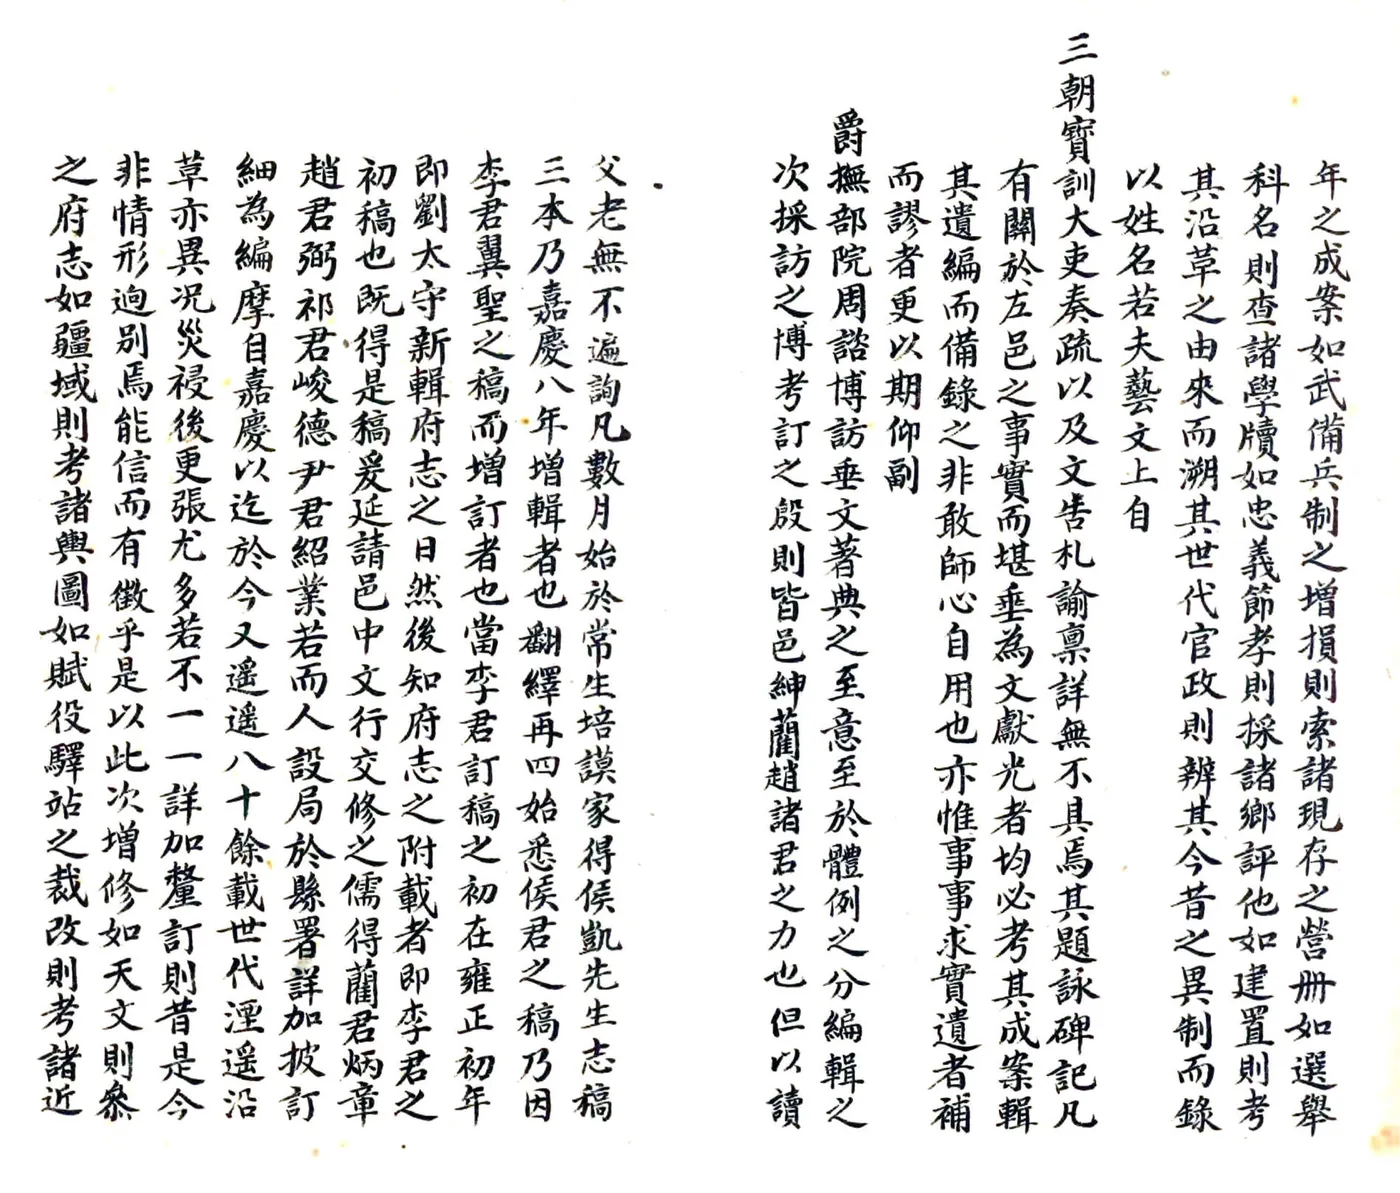 父老無不遍詢凡數月始於常生培謨家得侯凱先生志稿
三本乃嘉慶八年增輯者也翻繹再四始悉侯君之稿乃因
李君翼聖之稿而增訂者也當李君訂稿之初在雍正初年
即劉太守新輯府志之日然後知府志之附載者即李君之
初稿也既得是稿爰延請邑中文行交修之儒得藺君炳章
趙君弼祁君峻德尹君紹業若而人設局於縣署詳加披訂
細為編摩自嘉慶以迄於今又遥遥八十餘載世代湮遥沿
草亦異况災祲後更張尤多若不一一詳加釐訂則昔是今
非情形逈別焉能信而有徵乎是以此次增修如天文則叅
之府志如疆域則考諸輿圖如賦役驛站之裁改則考諸近
年之成案如武備兵制之增損則索諸現存之營册如選舉
科名則查諸學牘如忠義節孝則採諸鄉評他如建置則考
其沿草之由來而溯其世代官政則辨其今昔之異制而錄
以姓名若夫藝文上自
三朝寳訓大吏奏疏以及文告札諭禀詳無不具焉其題詠碑記凡
有關於左邑之事實而堪垂為文獻光者均必考其成案輯
其遺編而備錄之非敢師心自用也亦惟事事求實遺者補
而謬者更以期仰副
爵撫部院周諮博訪垂文著典之至意至於體例之分編輯之
次採訪之博考訂之殷則皆邑紳藺趙諸君之力也但以讀